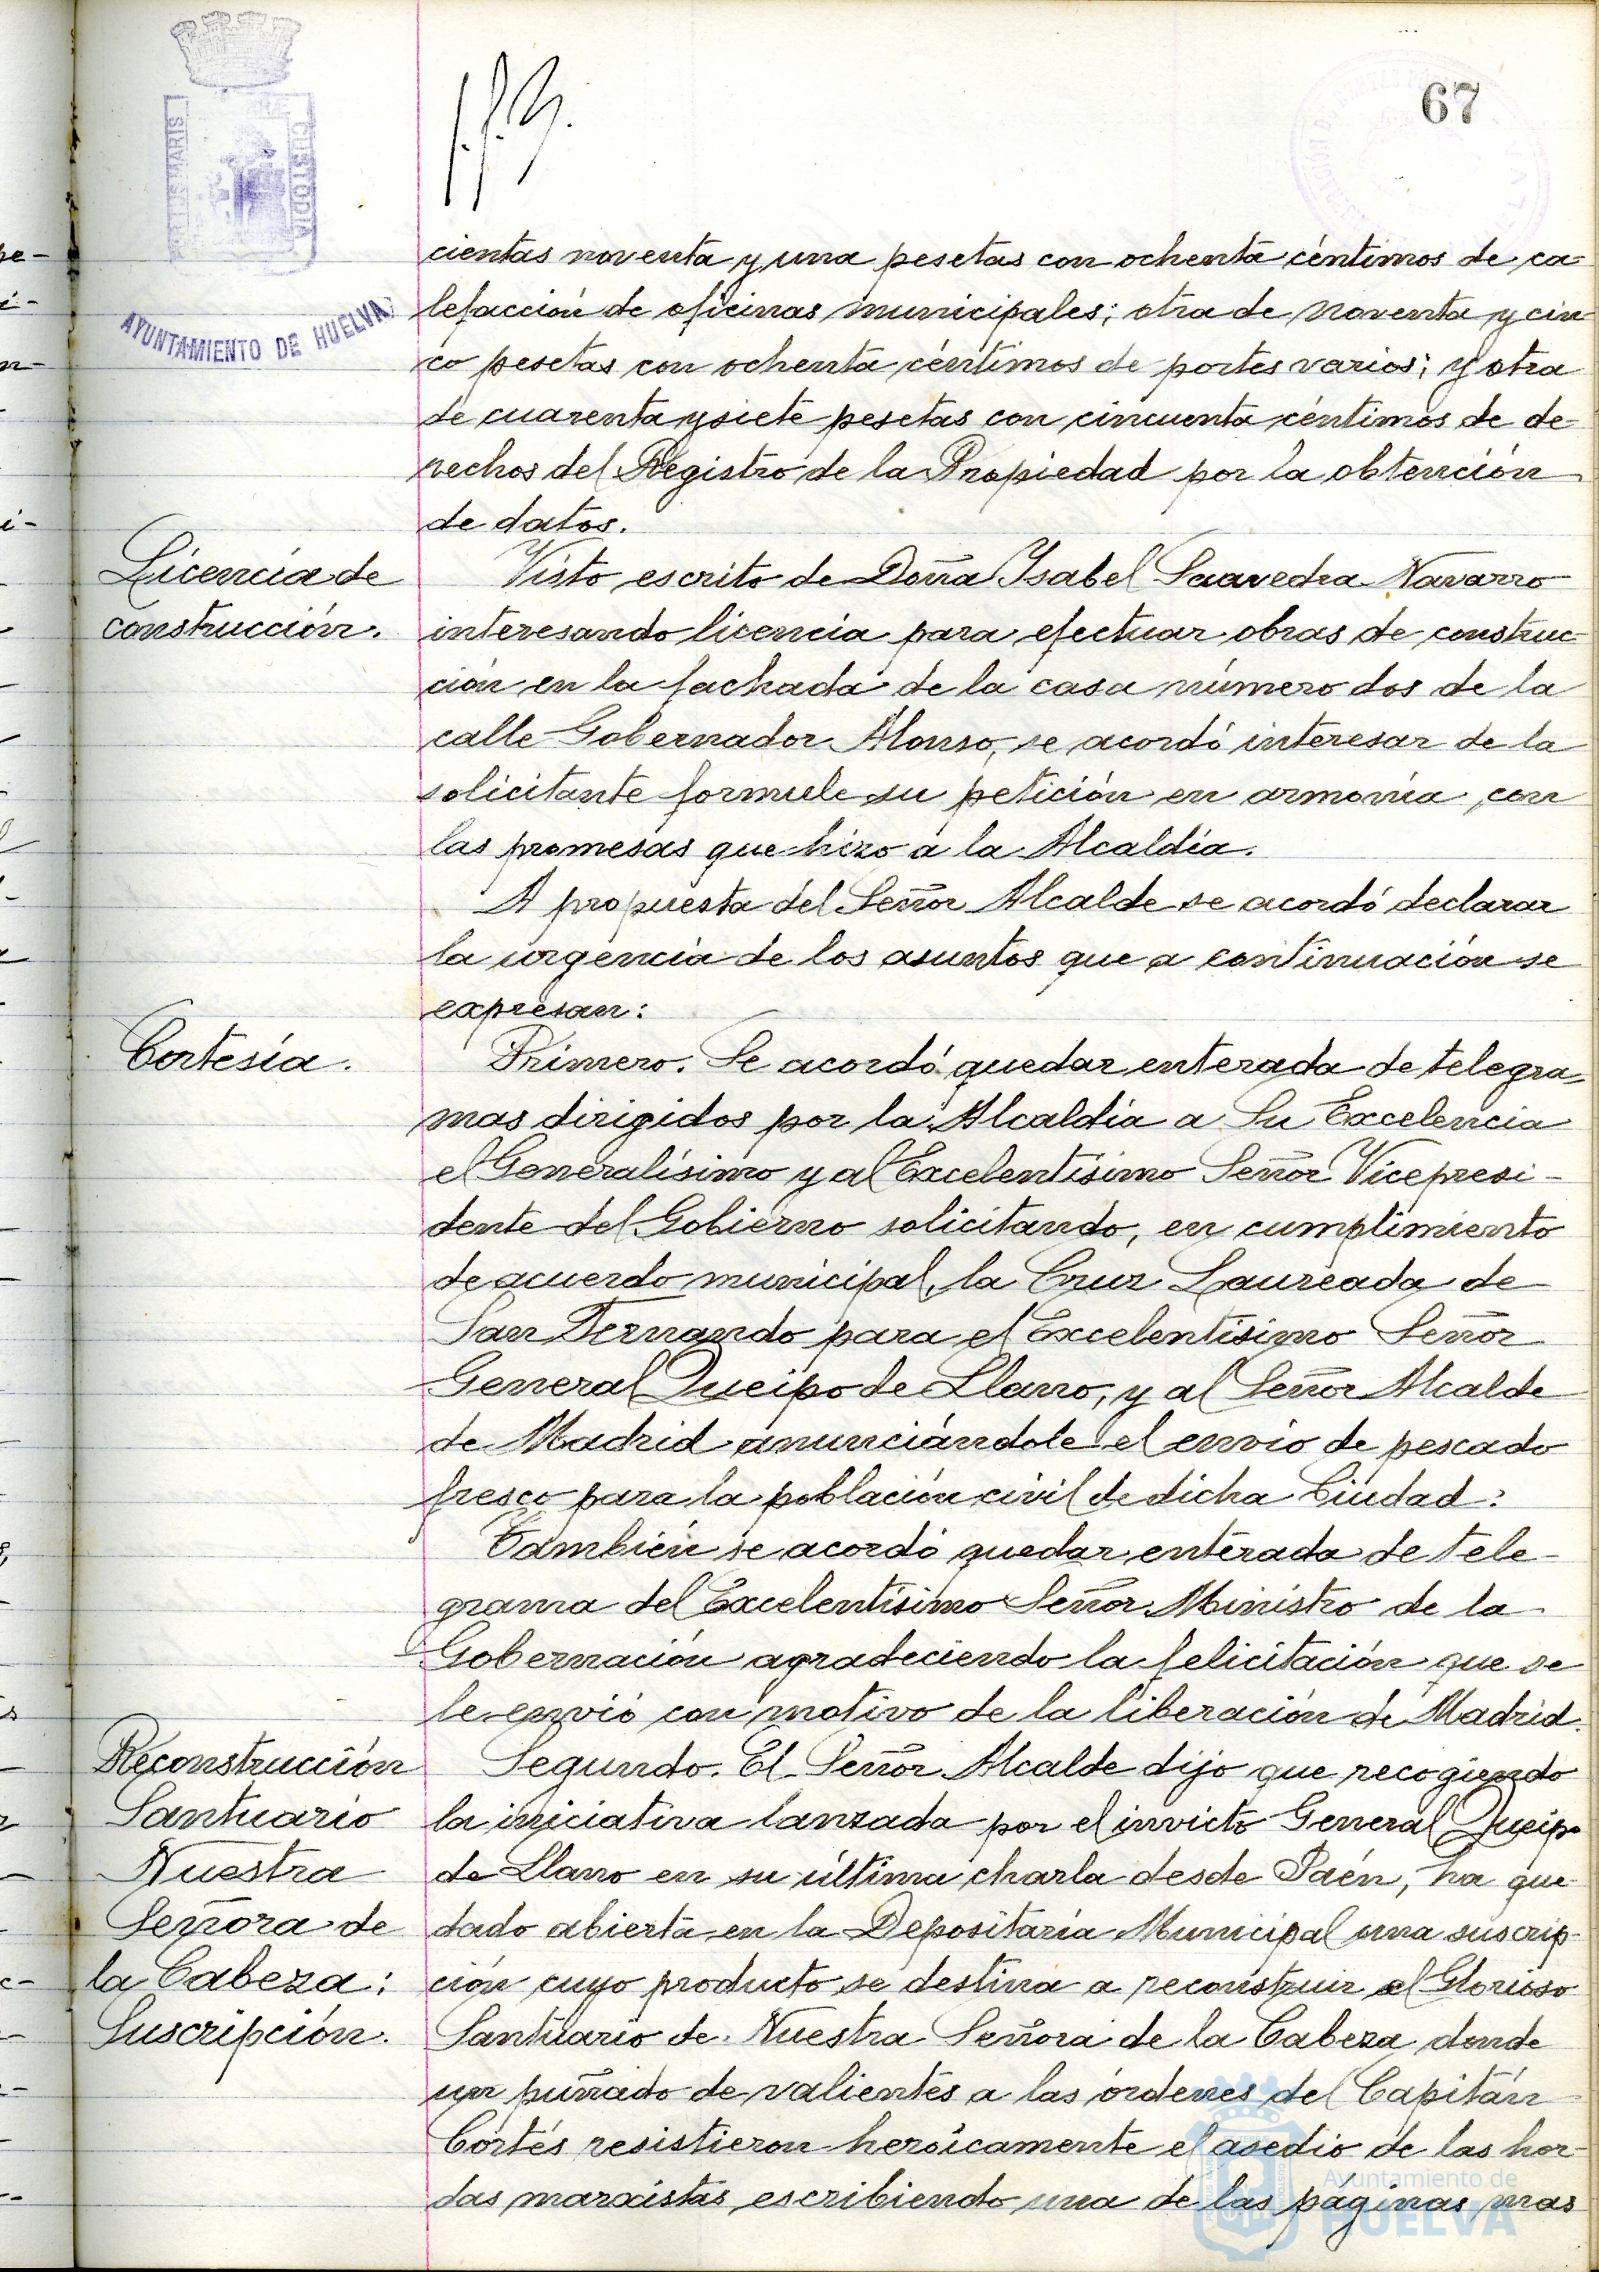 67
PORTUS MARIS
CUSTODIA
AYUNTAMIENTO DE HUELVA
cientas noventa y una pesetas con ochenta céntimos de ca-
lefacción de oficinas municipales; otra de noventa y cin-
co pesetas con ochenta céntimos de portes varios; y otra
de cuarenta y siete pesetas con cincuenta céntimos de de-
rechos del Registro de la Propiedad por la obtención
de datos.
Licencia de
construcción.
Visto escrito de Doña Ysabel Saavedra Navarro
interesando licencia para efectuar obras de construc-
ción en la fachada de la casa número dos de la
calle Gobernador Alonso, se acordó interesar de la
solicitante formule su petición en armonía con
las promesas que hizo a la Alcaldía.
A propuesta del Señor Alcalde se acordó declarar
la urgencia de los asuntos que a continuación se
expresan:
Cortesía.
Primero. Se acordó quedar enterada de telegra-
mas dirigidos por la Alcaldía a Su Excelencia
el Generalísimo y al Excelentísimo Señor Vicepresi-
dente del Gobierno solicitando, en cumplimiento
de acuerdo municipal, la Cruz Laureada de
San Fernando para el Excelentísimo Señor
General Queipo de Llano, y al Señor Alcalde
de Madrid anunciándole el envío de pescado
fresco para la población civil de dicha Ciudad:
También se acordó quedar enterada de tele-
grama del Excelentísimo Señor Ministro de la
Gobernación agradeciendo la felicitación que se
le envió con motivo de la liberación de Madrid.
Reconstrucción
Santuario
Nuestra
Señora de
la Cabeza:
Suscripción.
Segundo. El Señor Alcalde dijo que recogiendo
la iniciativa lanzada por el invicto General Queipo
de Llano en su última charla desde Jaén, ha que-
dado abierta en la Depositaría Municipal una suscrip-
ción cuyo producto se destina a reconstruir el Glorioso
Santuario de Nuestra Señora de la Cabeza donde
un puñado de valientes a las órdenes del Capitán
Cortés resistieron heróicamente el asedio de las hor-
das marxistas escribiendo una de las páginas mas
Ayuntamiento de
HUELVA